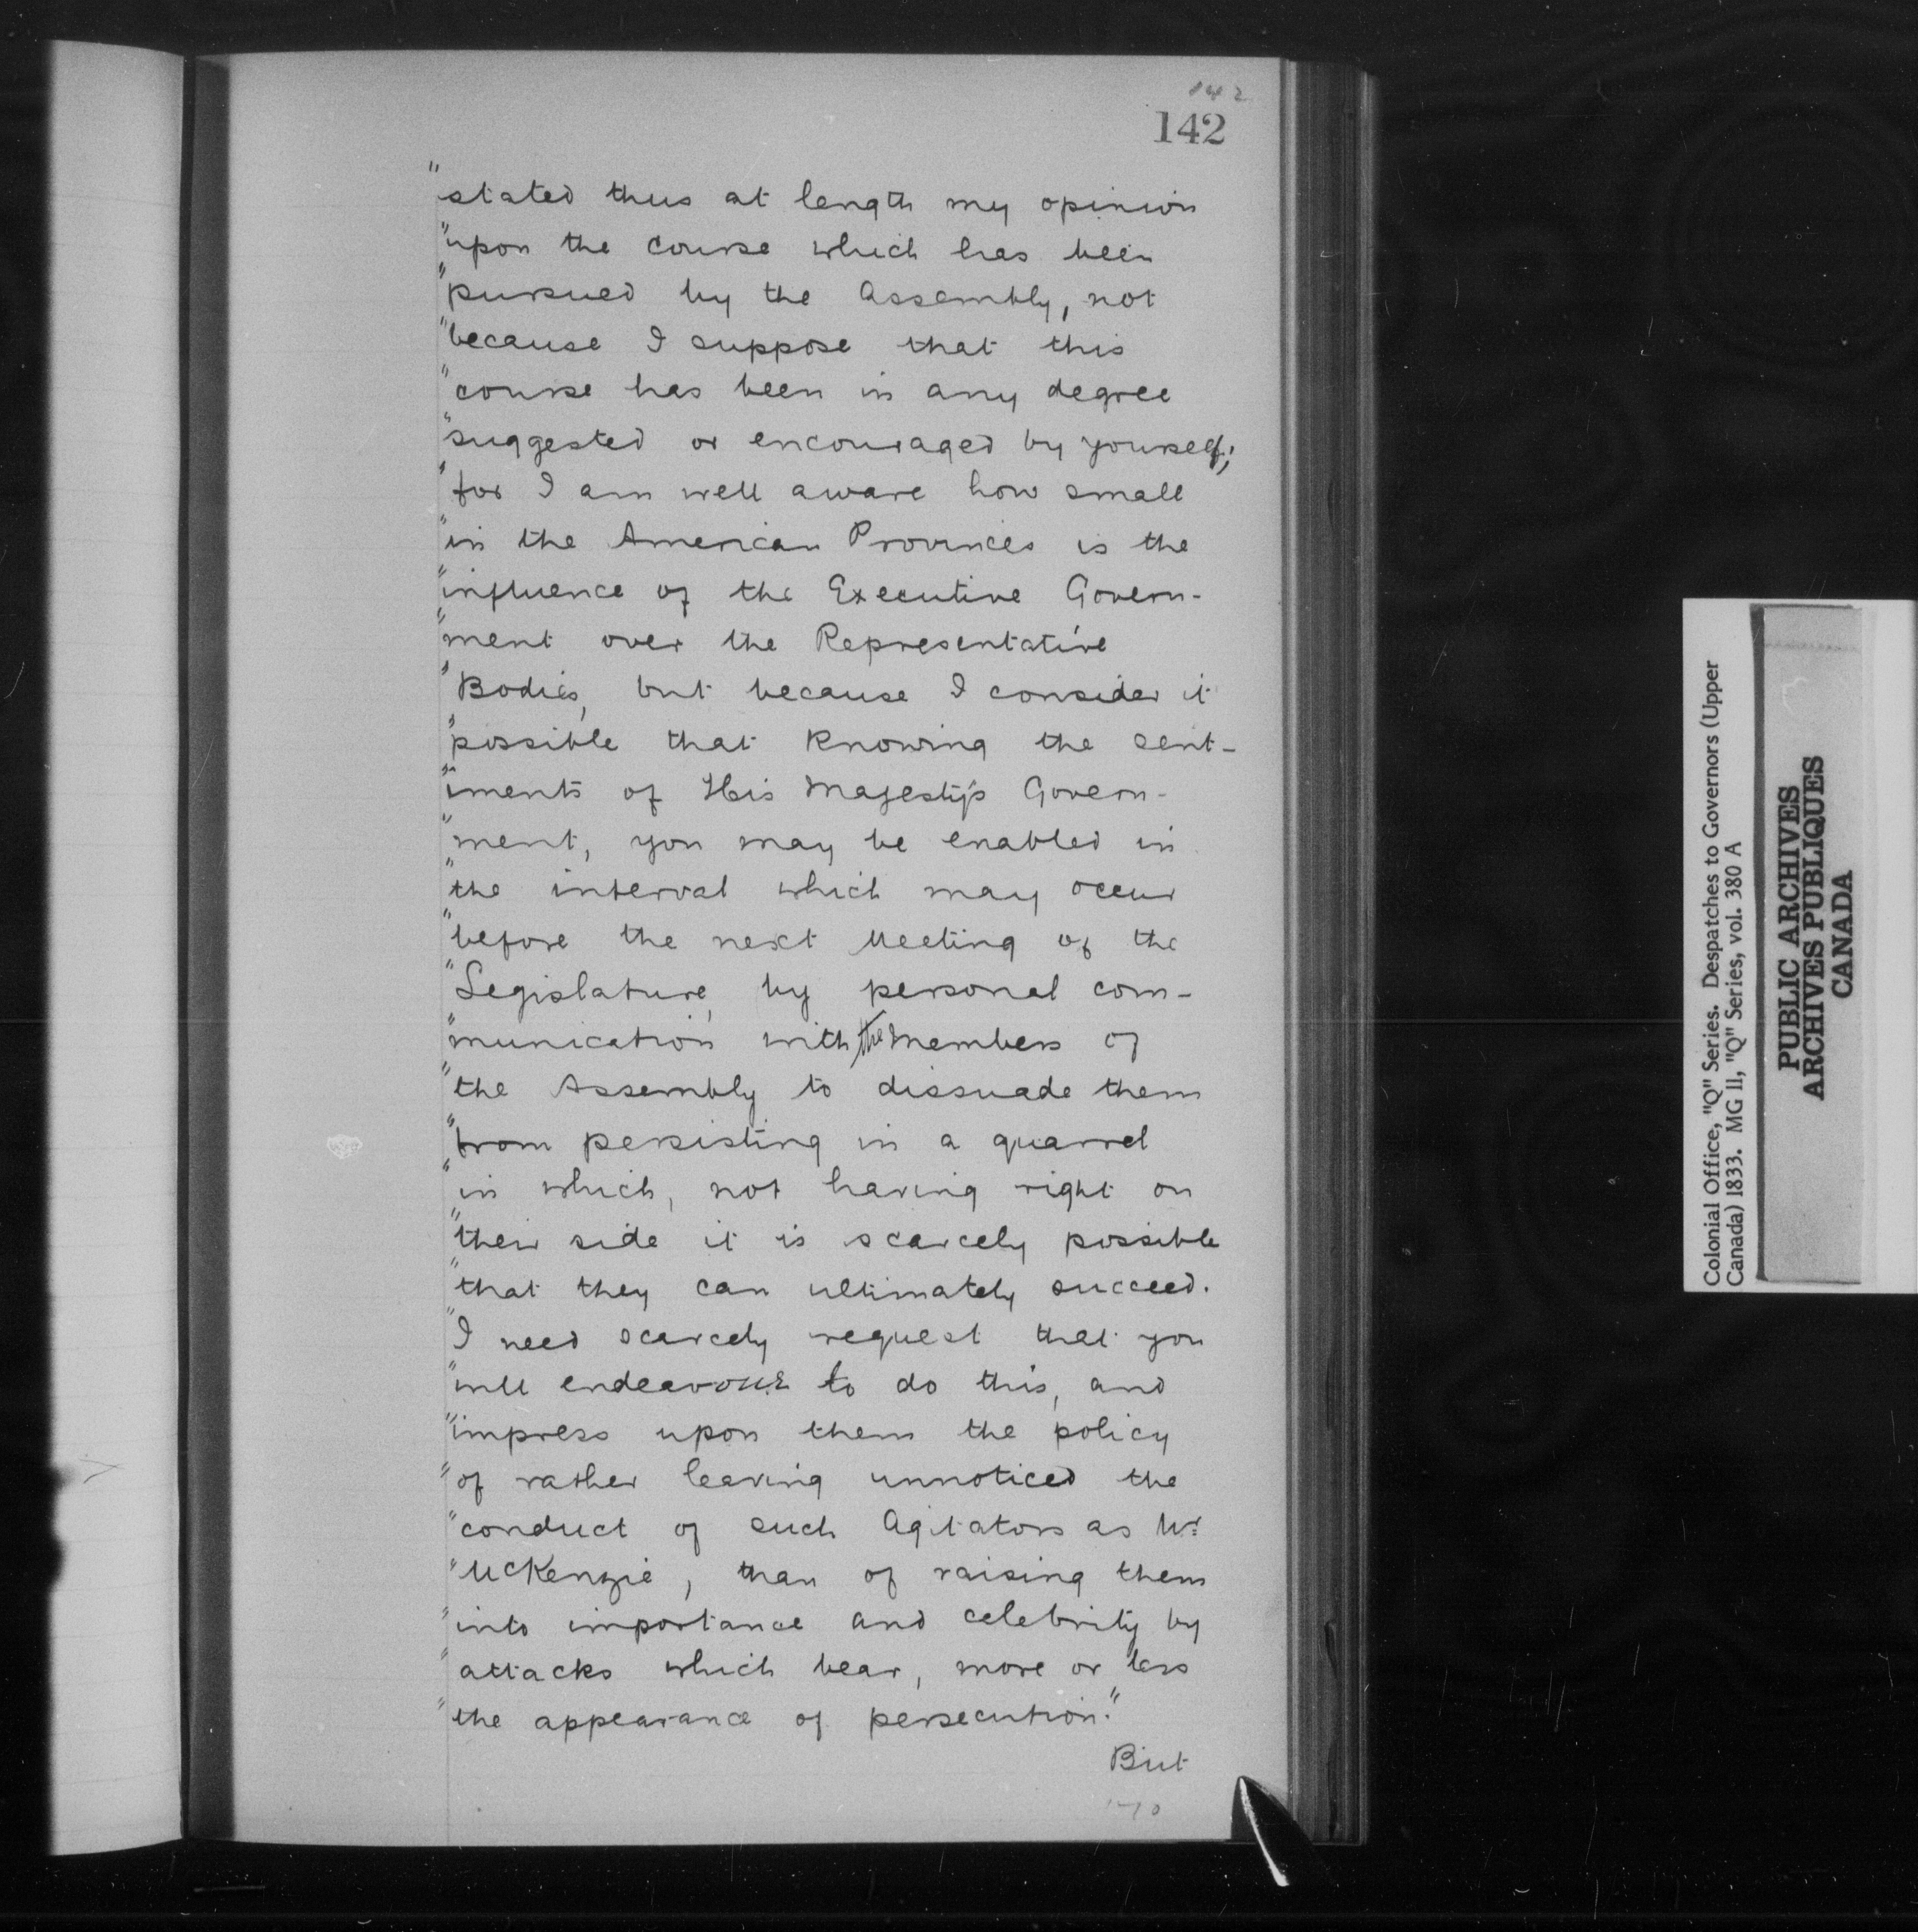 142
142
"stated thus at length my opinion
"upon the course which has been
"pursued by the Assembly, not
"because I suppose that this
"course has been in any degree
"suggested or encouraged by yourself;
"for I am well aware how small
"in the American Provinces is the
"influence of the Executive Govern-
"ment over the Representative
"Bodies, but because I consider it
"possible that knowing the sent-
"iments of His Majesty's Govern-
"ment, you may be enabled in
"the interval which may occur
"before the next Meeting of the
"Legislature, by personal com-
"munication with the Members of
"the Assembly to dissuade them
"from persisting in a quarrel
"in which, not having right on
"their side it is scarcely possible
"that they can ultimately succeed.
"I need scarcely request that you
"will endeavour to do this, and
"impress upon them the policy
"of rather leaving unnoticed the
"conduct of such Agitators as Mr
"McKenzie, than of raising them
"into importance and celebrity by
"attacks which bear, more or less
"the appearance of persecution."
But
Colonial Office, "Q" Series. Despatches to Governors (Upper
Canada) 1833. MG 11, "Q" Series, vol. 380 A
PUBLIC ARCHIVES
ARCHIVES PUBLIQUES
CANADA